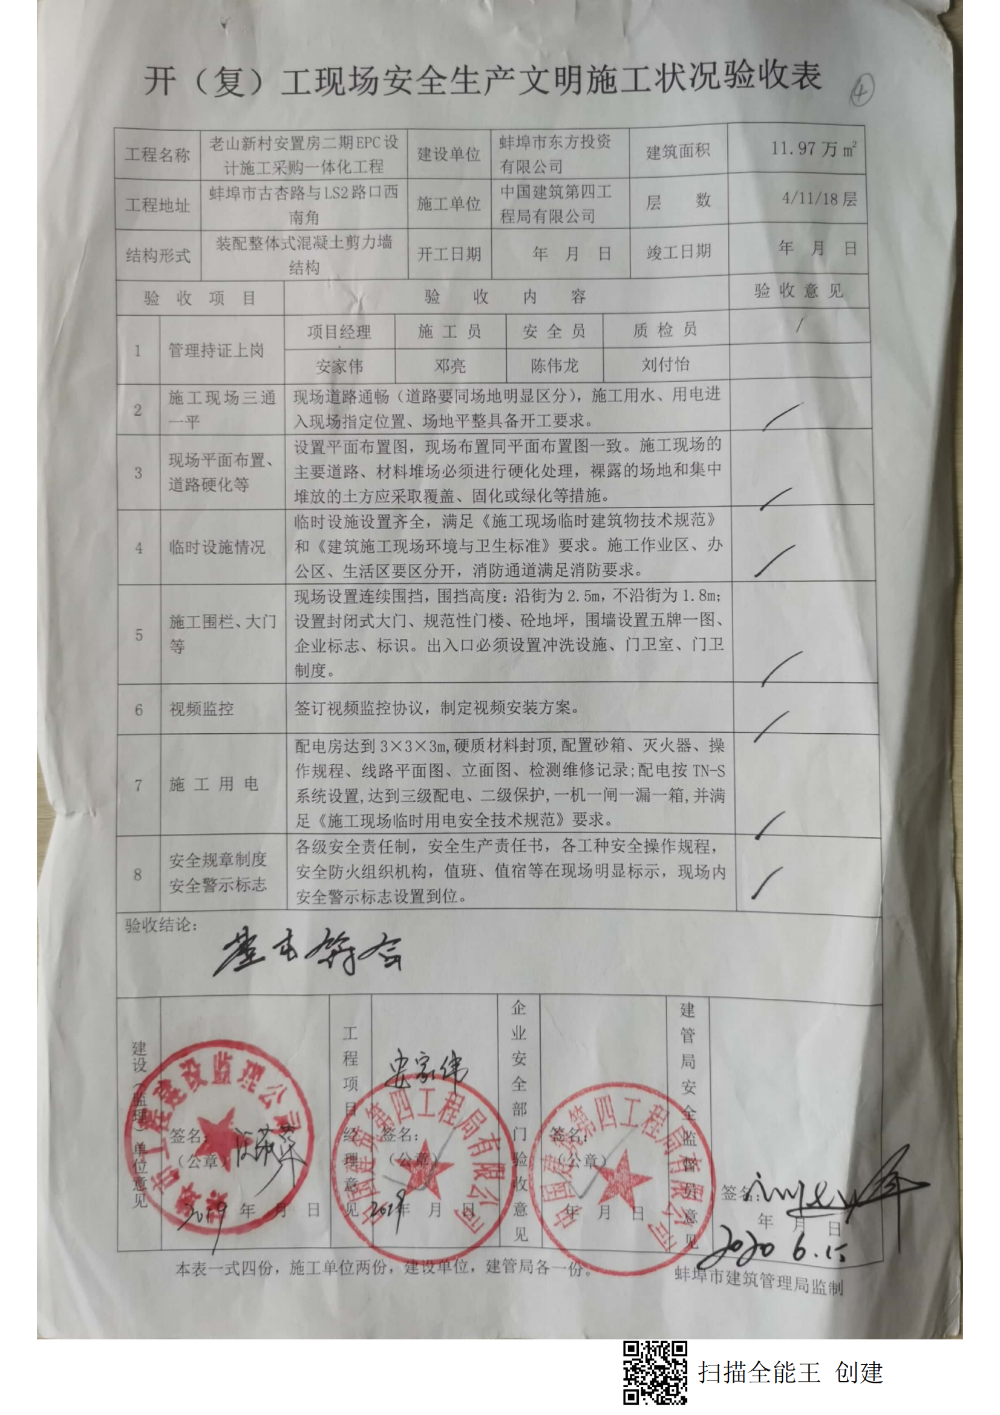 开（复）工现场安全生产文明施工状况验收表
④
工程名称 老山新村安置房二期EPC设计施工采购一体化工程 建设单位 蚌埠市东方投资有限公司 建筑面积 11.97万㎡
工程地址 蚌埠市古杏路与LS2路口西南角 施工单位 中国建筑第四工程局有限公司 层 数 4/11/18层
结构形式 装配整体式混凝土剪力墙结构 开工日期 年 月 日 竣工日期 年 月 日
验 收 项 目 验 收 内 容 验 收 意 见
1 管理持证上岗 项目经理 施 工 员 安 全 员 质 检 员 /
安家伟 邓亮 陈伟龙 刘付怡
2 施工现场三通一平 现场道路通畅（道路要同场地明显区分），施工用水、用电进
入现场指定位置、场地平整具备开工要求。
3 现场平面布置、道路硬化等 设置平面布置图，现场布置同平面布置图一致。施工现场的
主要道路、材料堆场必须进行硬化处理，裸露的场地和集中
堆放的土方应采取覆盖、固化或绿化等措施。
4 临时设施情况 临时设施设置齐全，满足《施工现场临时建筑物技术规范》
和《建筑施工现场环境与卫生标准》要求。施工作业区、办
公区、生活区要区分开，消防通道满足消防要求。
5 施工围栏、大门等 现场设置连续围挡，围挡高度：沿街为2.5m，不沿街为1.8m；
设置封闭式大门、规范性门楼、砼地坪，围墙设置五牌一图、
企业标志、标识。出入口必须设置冲洗设施、门卫室、门卫
制度。
6 视频监控 签订视频监控协议，制定视频安装方案。
7 施 工 用 电 配电房达到3×3×3m,硬质材料封顶,配置砂箱、灭火器、操
作规程、线路平面图、立面图、检测维修记录;配电按TN-S
系统设置,达到三级配电、二级保护,一机一闸一漏一箱,并满
足《施工现场临时用电安全技术规范》要求。
8 安全规章制度安全警示标志 各级安全责任制，安全生产责任书，各工种安全操作规程，
安全防火组织机构，值班、值宿等在现场明显标示，现场内
安全警示标志设置到位。
验收结论：
基本符合
建设（监理）单位意见
签名：
（公章）
2019 年 月 日
工程项目经理意见
安家伟
签名：
（公章）
2019 年 月 日
中国建筑第四工程局有限公司
企业安全部门验收意见
签名：
（公章）
年 月 日
中国建筑第四工程局有限公司
建管局安全监督员意见
签名：
年 月 日
2020 6.15
本表一式四份，施工单位两份，建设单位，建管局各一份。
蚌埠市建筑管理局监制
扫描全能王 创建